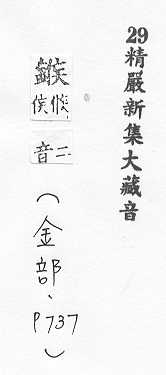 29精嚴新集大藏音
候二
侯音
(金部、P737)